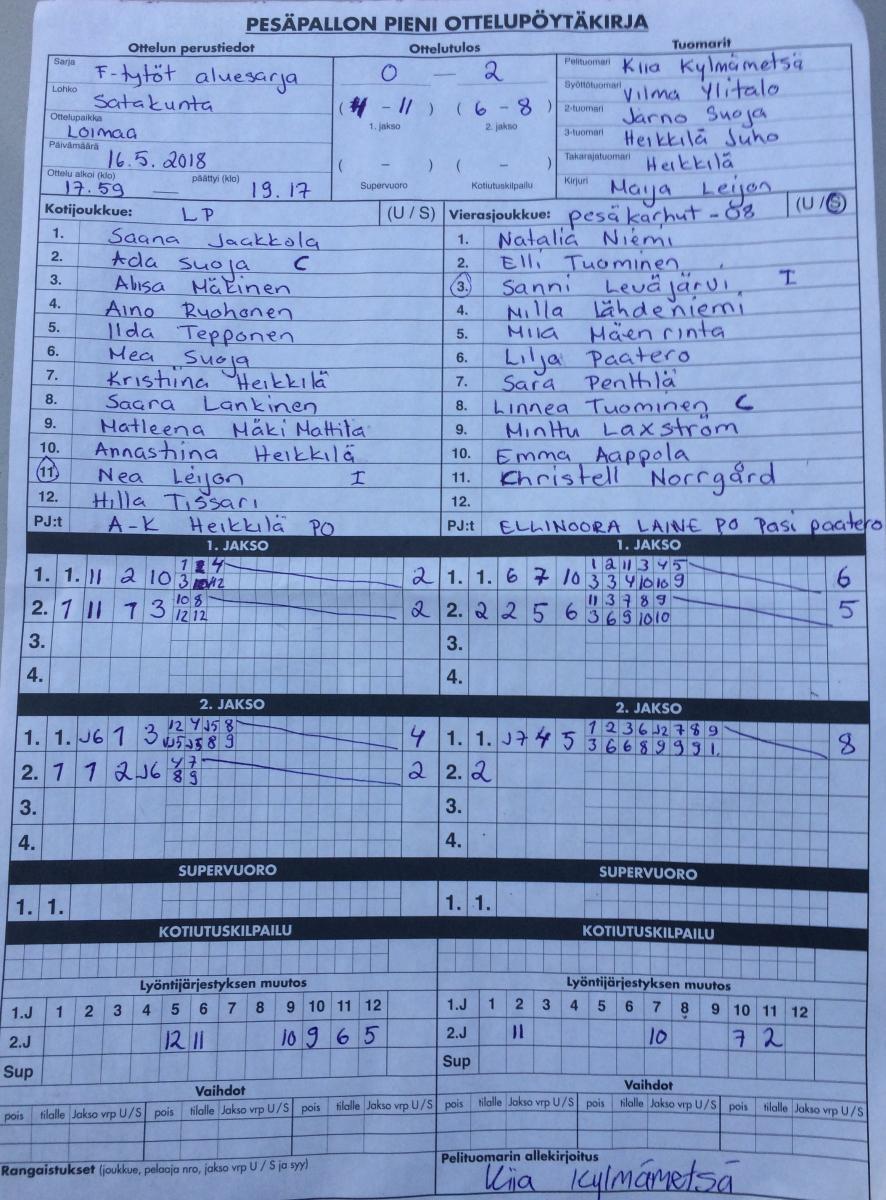 PESÄPALLON PIENI OTTELUPÖYTÄKIRJA
Ottelun perustiedot
Sarja F-tytöt aluesarja
Lohko Satakunta
Ottelupaikka Loimaa
Päivämäärä 16.5.2018
Ottelu alkoi (klo) 17.59 — päättyi (klo) 19.17
Ottelutulos
0 — 2
(4 - 11) (6 - 8)
1. jakso 2. jakso
( - ) ( - )
Supervuoro Kotiutuskilpailu
Tuomarit
Pelituomari Kiia Kylmämetsä
Syöttötuomari Vilma Ylitalo
2-tuomari Jarno Suoja
3-tuomari Heikkilä Juho
Takarajatuomari Heikkilä
Kirjuri Maija Leijon
Kotijoukkue: LP (U / S)
1. Saana Jaakkola
2. Ada Suoja C
3. Alisa Mäkinen
4. Aino Ryohonen
5. Ilda Tepponen
6. Mea Suoja
7. Kristiina Heikkilä
8. Saara Lankinen
9. Matleena Mäki Mattila
10. Annastiina Heikkilä
11 Nea Leijon I
12. Hilla Tissari
PJ:t A-K Heikkilä PO
Vierasjoukkue: pesäkarhut -08 (U/S)
1. Natalia Niemi
2. Elli Tuominen
3. Sanni Leväjärvi I
4. Nilla Lähdeniemi
5. Miia Mäenrinta
6. Lilja Paatero
7. Sara Penttilä
8. Linnea Tuominen C
9. Minttu Laxström
10. Emma Aappola
11. Christell Norrgård
12.
PJ:t ELLINOORA LAINE PO Pasi paatero
1. JAKSO
1. 1. 11 2 10 2
2. 1 11 1 3 10 8 2
12 12
3.
4.
1. JAKSO
1 2 11 3 4 5
1. 1. 6 7 10 3 3 4 10 10 9 6
11 3 7 8 9
2. 2 2 5 6 3 6 9 10 10 5
3.
4.
2. JAKSO
12 4 J5 8
1. 1. J6 1 3 4
4 7
2. 1 1 2 J6 8 9 2
3.
4.
2. JAKSO
1 2 3 6 J2 7 8 9
1. 1. J7 4 5 3 6 6 8 9 9 9 1. 8
2. 2
3.
4.
SUPERVUORO
1. 1.
SUPERVUORO
1. 1.
KOTIUTUSKILPAILU
KOTIUTUSKILPAILU
Lyöntijärjestyksen muutos
1.J 1 2 3 4 5 6 7 8 9 10 11 12
2.J 12 11 10 9 6 5
Sup
Lyöntijärjestyksen muutos
1.J 1 2 3 4 5 6 7 8 9 10 11 12
2.J 11 10 7 2
Sup
Vaihdot
pois tilalle Jakso vrp U / S pois tilalle Jakso vrp U / S pois tilalle Jakso vrp U / S
Vaihdot
pois tilalle Jakso vrp U / S pois tilalle Jakso vrp U / S pois tilalle Jakso vrp U / S
Rangaistukset (joukkue, pelaaja nro, jakso vrp U / S ja syy)
Pelituomarin allekirjoitus
Kiia Kylmämetsä